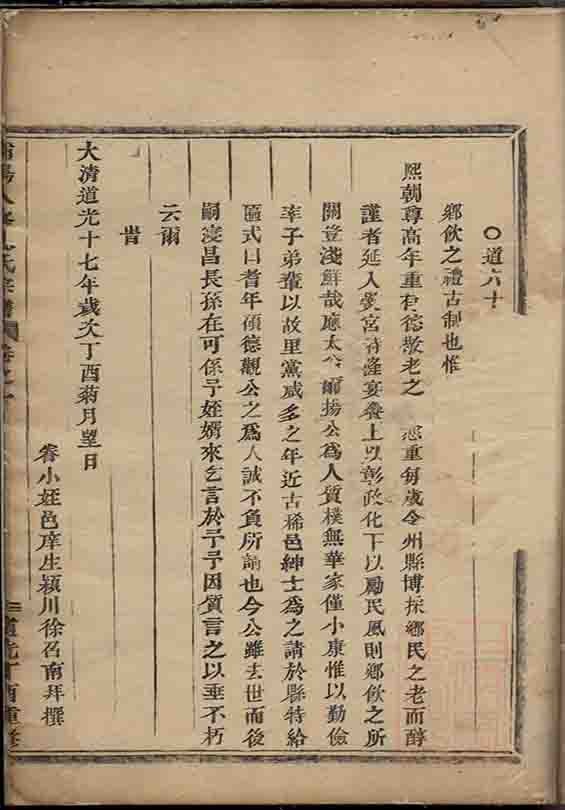 〇道六十
鄉飲之禮古制也惟
熙朝尊高年重有德敬老之 恩重每歲令州縣博採鄉民之老而醇
謹者延入黌宮特隆宴養上以彰政化下以勵民風則鄉飲之所
關豈淺鮮哉 太公 爾揚公為人質樸無華家僅小康惟以勤儉
率子弟輩以故里黨咸多之年近古稀邑紳士為之請於縣特給
匾式曰耆年碩德觀公之為人誠不負所 也今公雖去世而後
嗣寖昌長孫在可係予姪婿來乞言於予予因質言之以垂不朽
云爾
旹
大清道光十七年歲次丁酉菊月望日
眷小姪邑庠生潁川徐召南拜撰
氏宗譜 卷之
道光丁酉重修